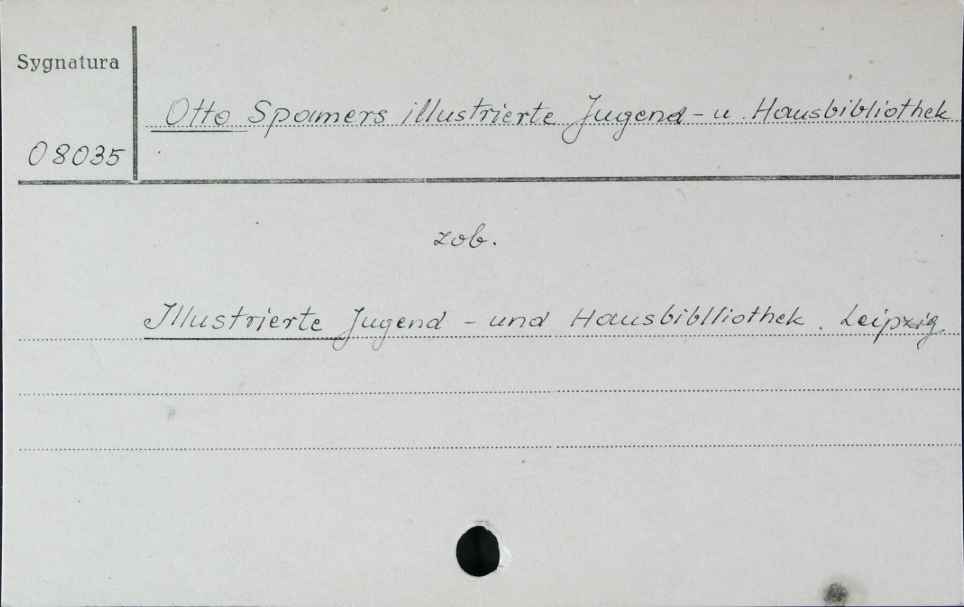 Sygnatura
Otto Spamers illustrierte Jugend - u. Hausbibliothek
08035
zob.
Illustrierte Jugend - und Hausbiblliothek. Leipzig